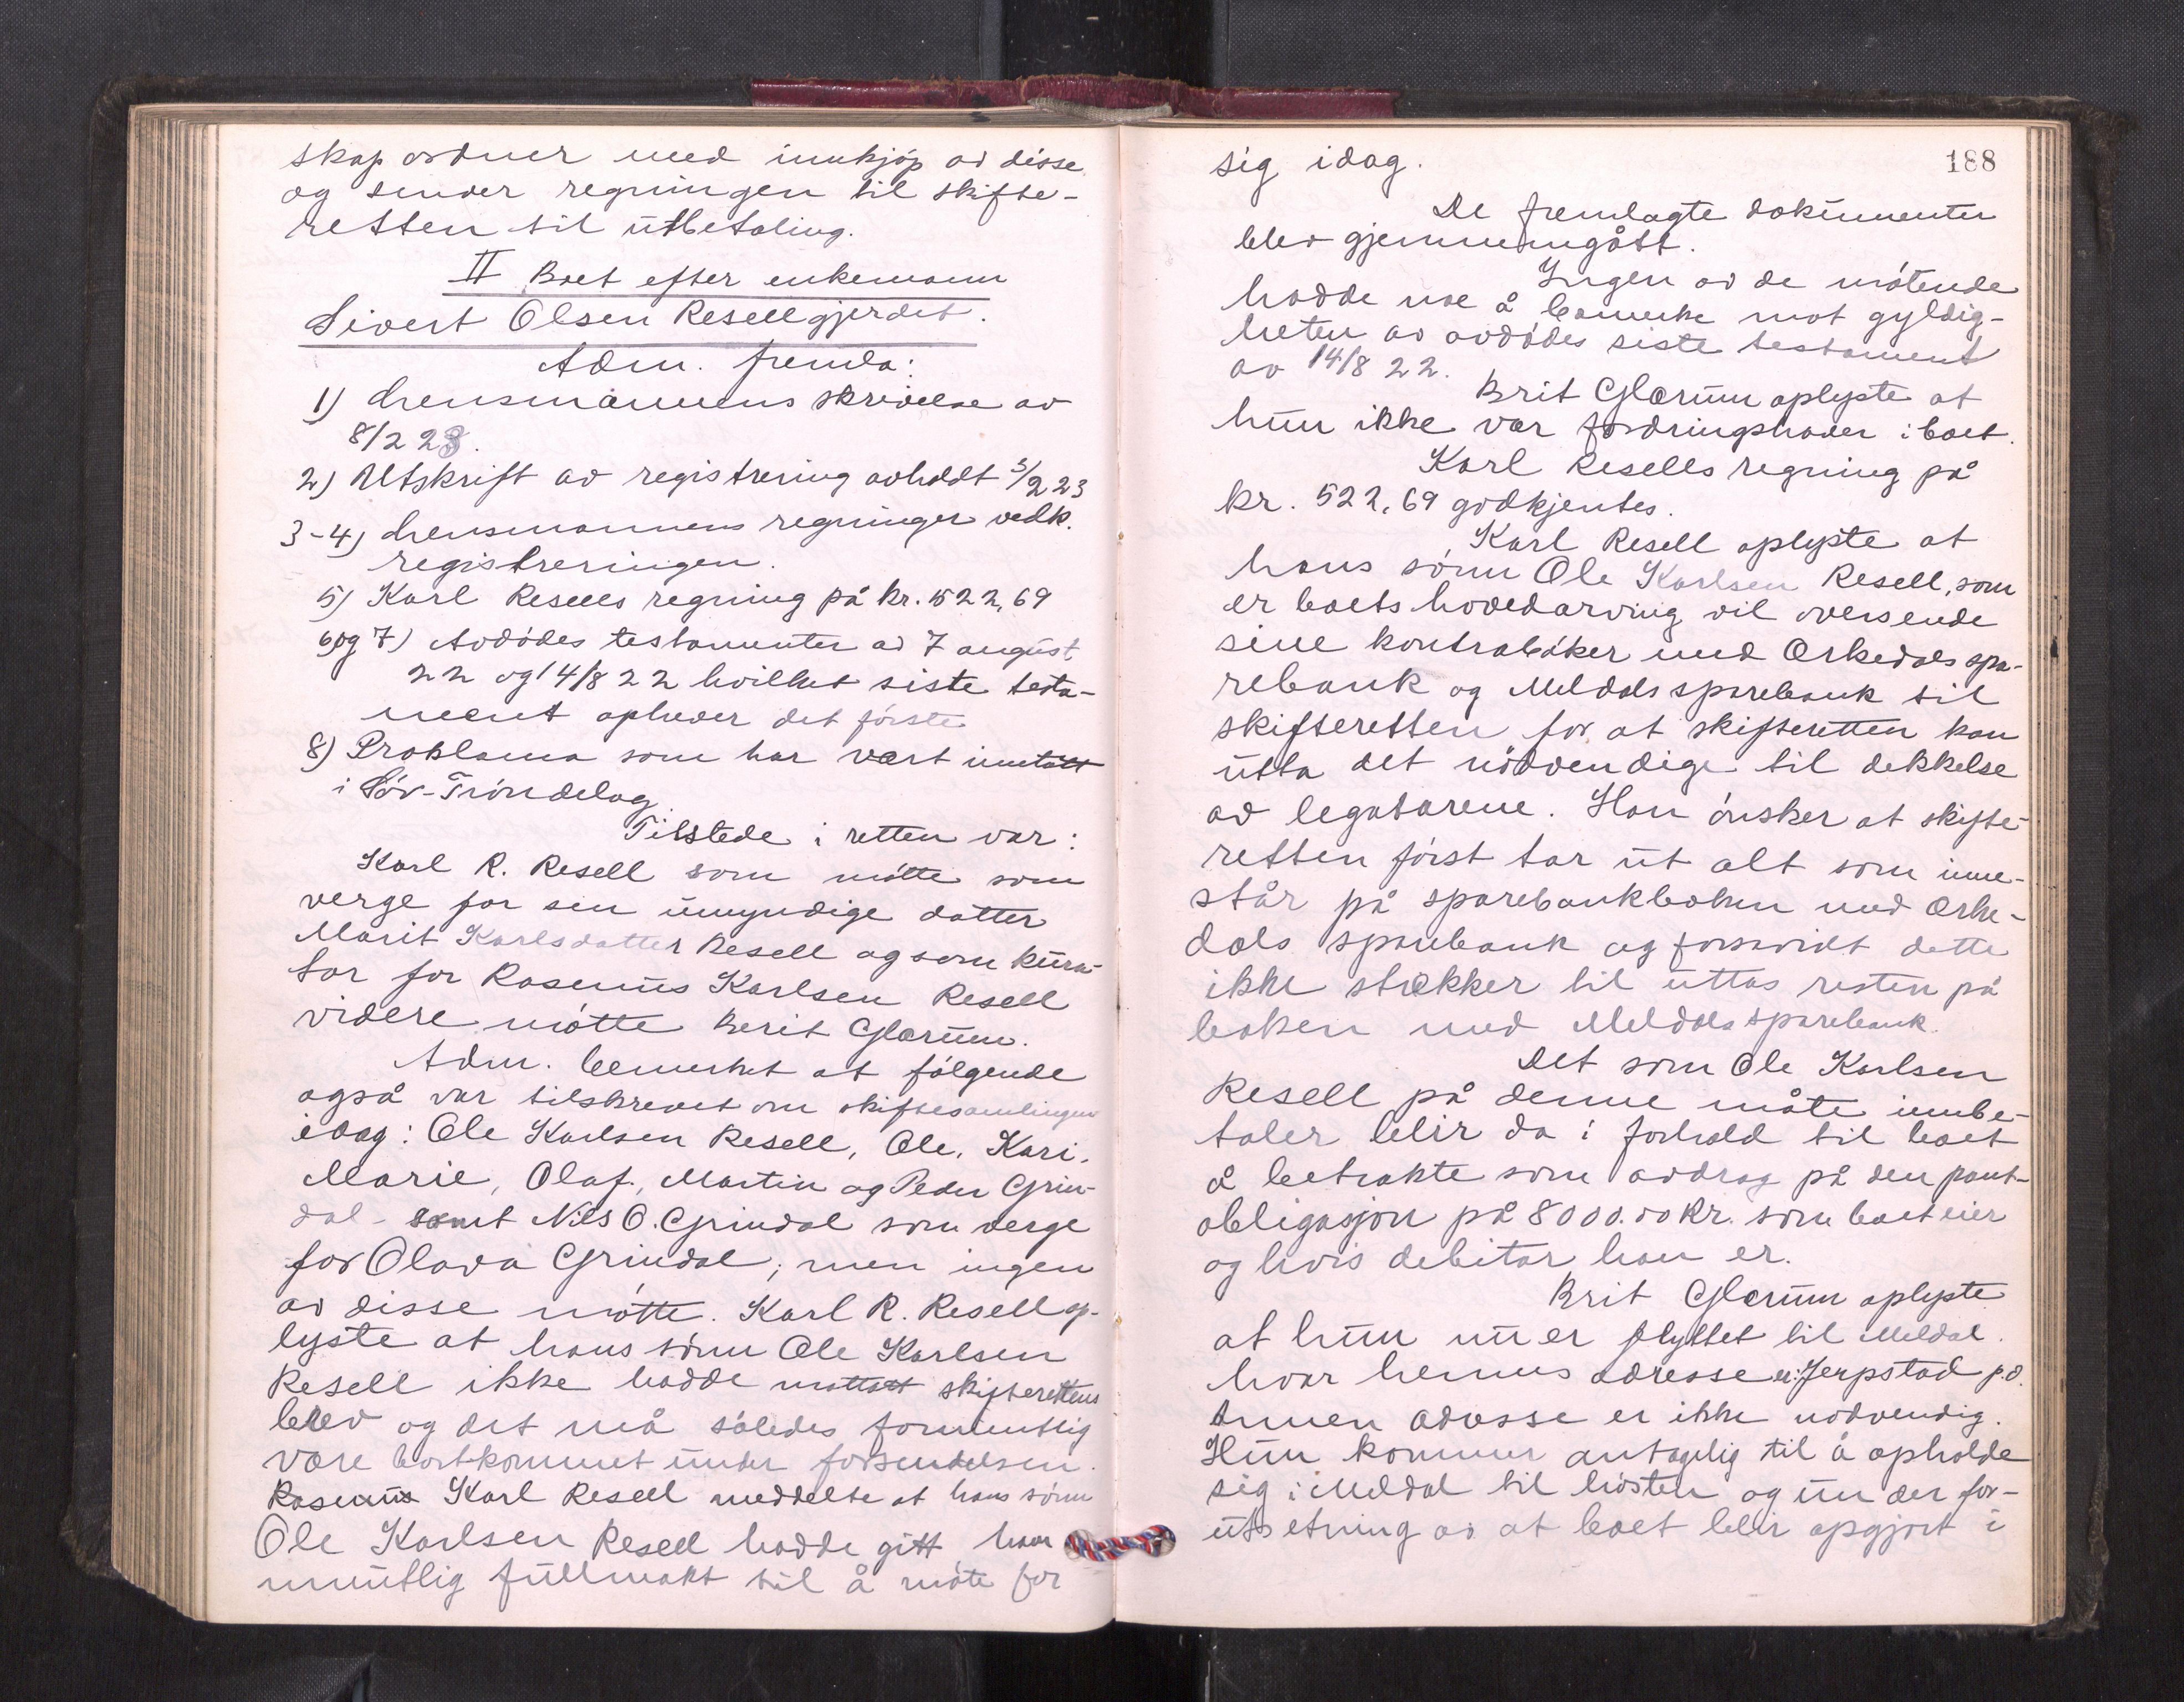 skap ordner med innkjøp av disse
og sender regningen til skifte-
retten til utbetaling.
II Boet efter enkemann
Sivert Olsen Resellgjerdet.
Adm. fremla:
1) Lensmannens skrivelse av
8/2 23.
2) Utskrift av registrering avholdt 3/2 23
3-4) Lensmannens regninger vedk.
registreringen.
5) Karl Resells regning på kr. 522,69
6) og 7) Avdødes testamenter av 7 august
22 og 14/8 22 hvilket siste testa-
ment ophever det første
8) Proklama som har vært inntatt
i Sör-Tröndelag.
Tilstede i retten var:
Karl R. Resell som møtte som
verge for sin umyndige datter
Marit Karlsdatter Resell og som kura-
tor for Rasmus Karlsen Resell
videre møtte Berit Glærum.
Adm. bemerket at følgende
også var tilskrevet om skiftesamlingen
idag: Ole Karlsen Resell, Ole, Kari,
Marie, Olaf, Martin og Peder Grin-
dal - samt Nils O. Grindal som verge
for Olava Grindal, men ingen
av disse møtte. Karl R. Resell op-
lyste at hans sønn Ole Karlsen
Resell ikke hadde mottatt skifterettens
brev og det må således formentlig
være bortkommet under forsendelsen.
Rasmus Karl Resell meddelte at hans sønn
Ole Karlsen Resell hadde gitt ham
muntlig fullmakt til å møte for
188
sig idag.
De fremlagte dokumenter
blev gjennemgått.
Ingen av de møtende
hadde noe å bemerke mot gyldig-
heten av avdødes siste testament
av 14/8 22.
Brit Glærum oplyste at
hun ikke var fordringshaver i boet.
Karl Resells regning på
kr. 522,69 godkjentes.
Karl Resell oplyste at
hans sønn Ole Karlsen Resell, som
er boets hovedarving vil oversende
sine kontrabøker med Orkedals spa-
rebank og Meldals sparebank til
skifteretten for at skifteretten kan
utta det nødvendige til dekkelse
av legatarene. Han ønsker at skifte-
retten først tar ut alt som inne-
står på sparebankboken med Orke-
dals sparebank og forsåvidt dette
ikke strekker til uttas resten på
boken med Meldals sparebank.
Det som Ole Karlsen
Resell på denne måte innbe-
taler blir da i forhold til boet
å betrakte som avdrag på den pant-
obligasjon på 8000.00 kr. som boet eier
og hvis debitor han er.
Brit Glærum oplyste
at hun nu er flyttet til Meldal.
hvor hennes adresse er: Jerpstad p.å.
Annen adresse er ikke nødvendig.
Hun kommer antagelig til å opholde
sig i Meldal til høsten og under for-
utsetning av at boet blir opgjort i